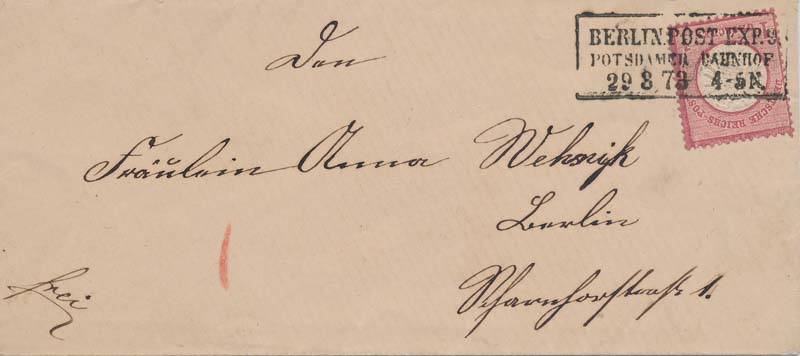 BERLIN.POST EXP.9.
POTSDAMER BAHNHOF
29 8 73 4-5N.
DEUTSCHE REICHS-POST
Den
Fräulein Anna
Berlin
Scharnhorststraße 1.
frei